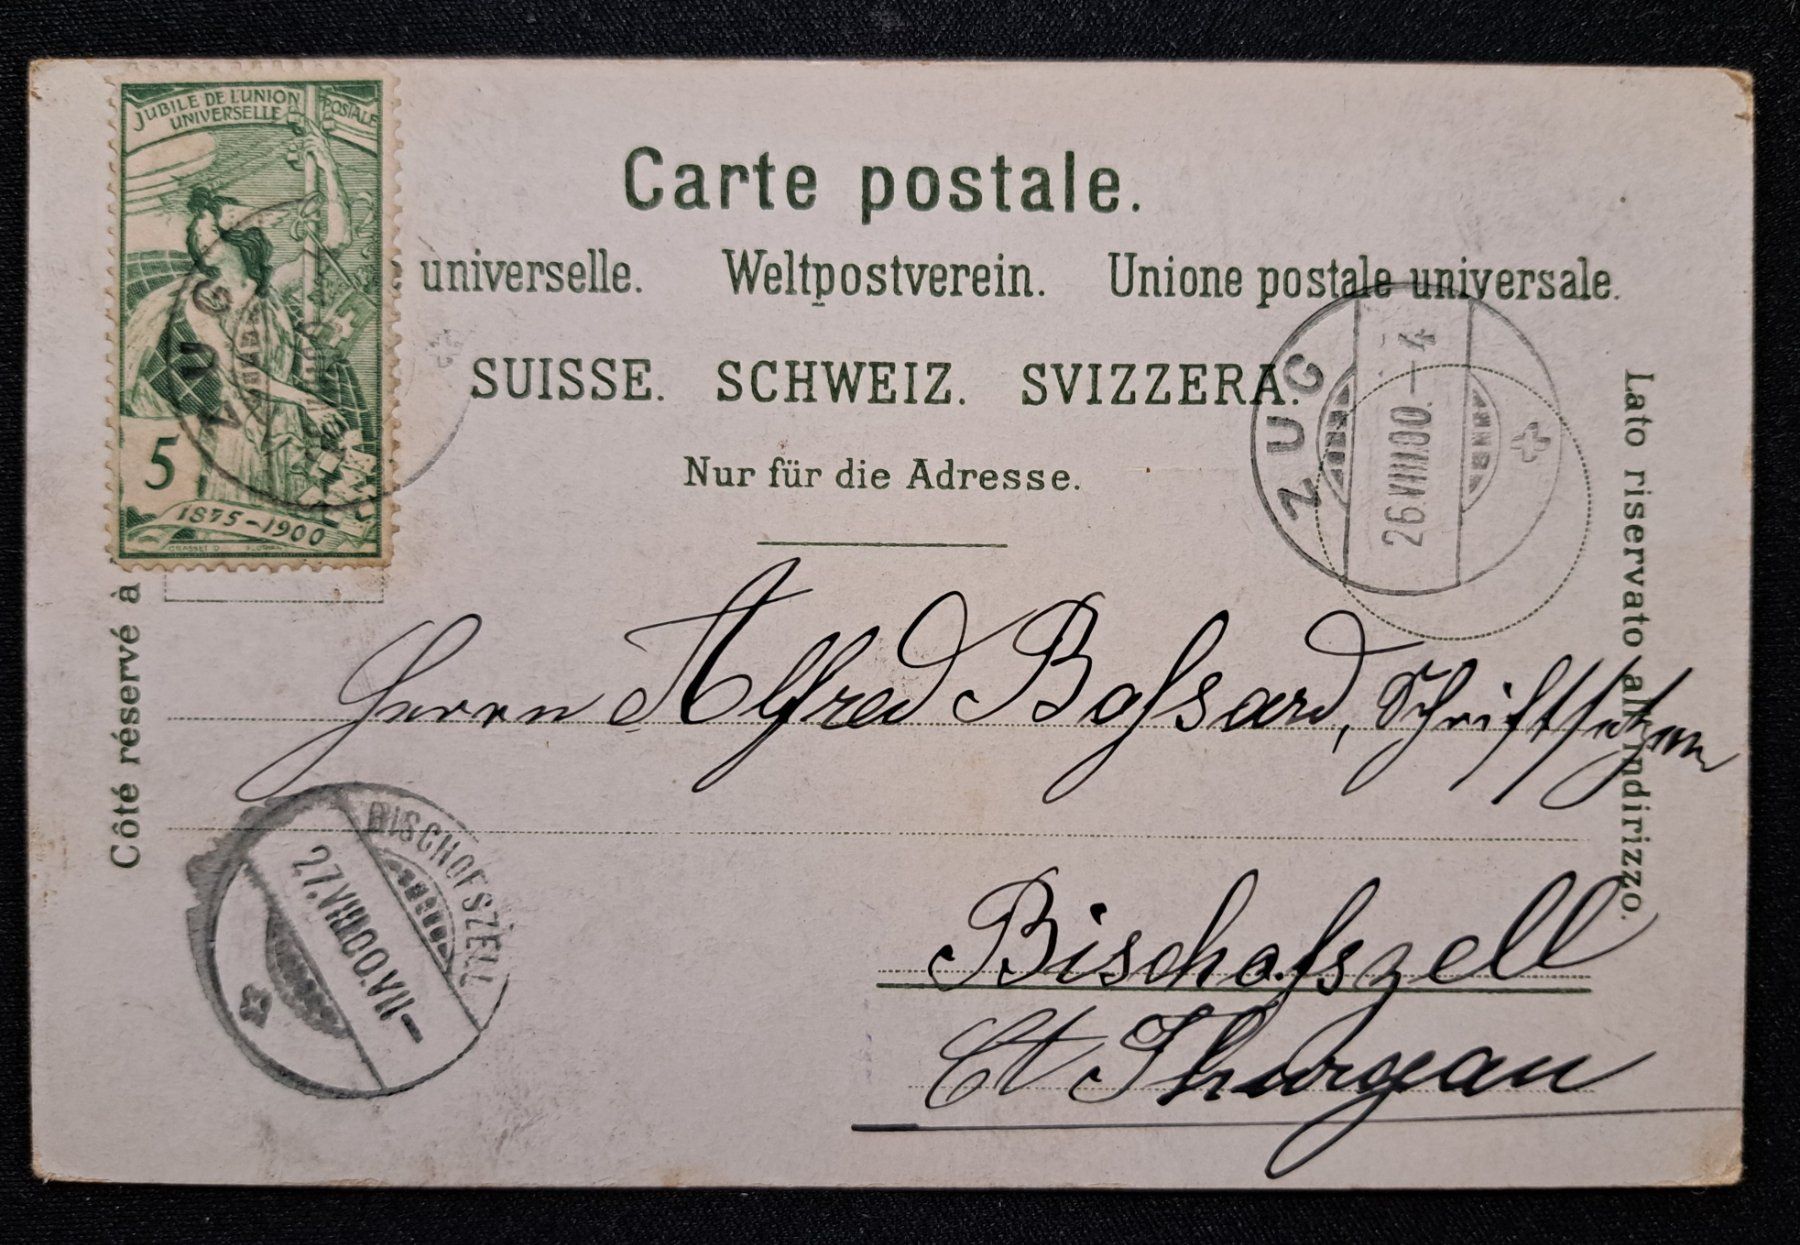 JUBILÉ DE L'UNION POSTALE
UNIVERSELLE
5
1875-1900
ZUG
Carte postale.
universelle. Weltpostverein. Unione postale universale.
SUISSE. SCHWEIZ. SVIZZERA.
Nur für die Adresse.
ZUG
26.VIII.00.-4
Côté réservé à
Lato riservato all'indirizzo.
Herrn Alfred Bossard, Schriftsetzer
Bischofszell
Ct Thurgau
BISCHOFSZELL
27.VIII.00.VII-